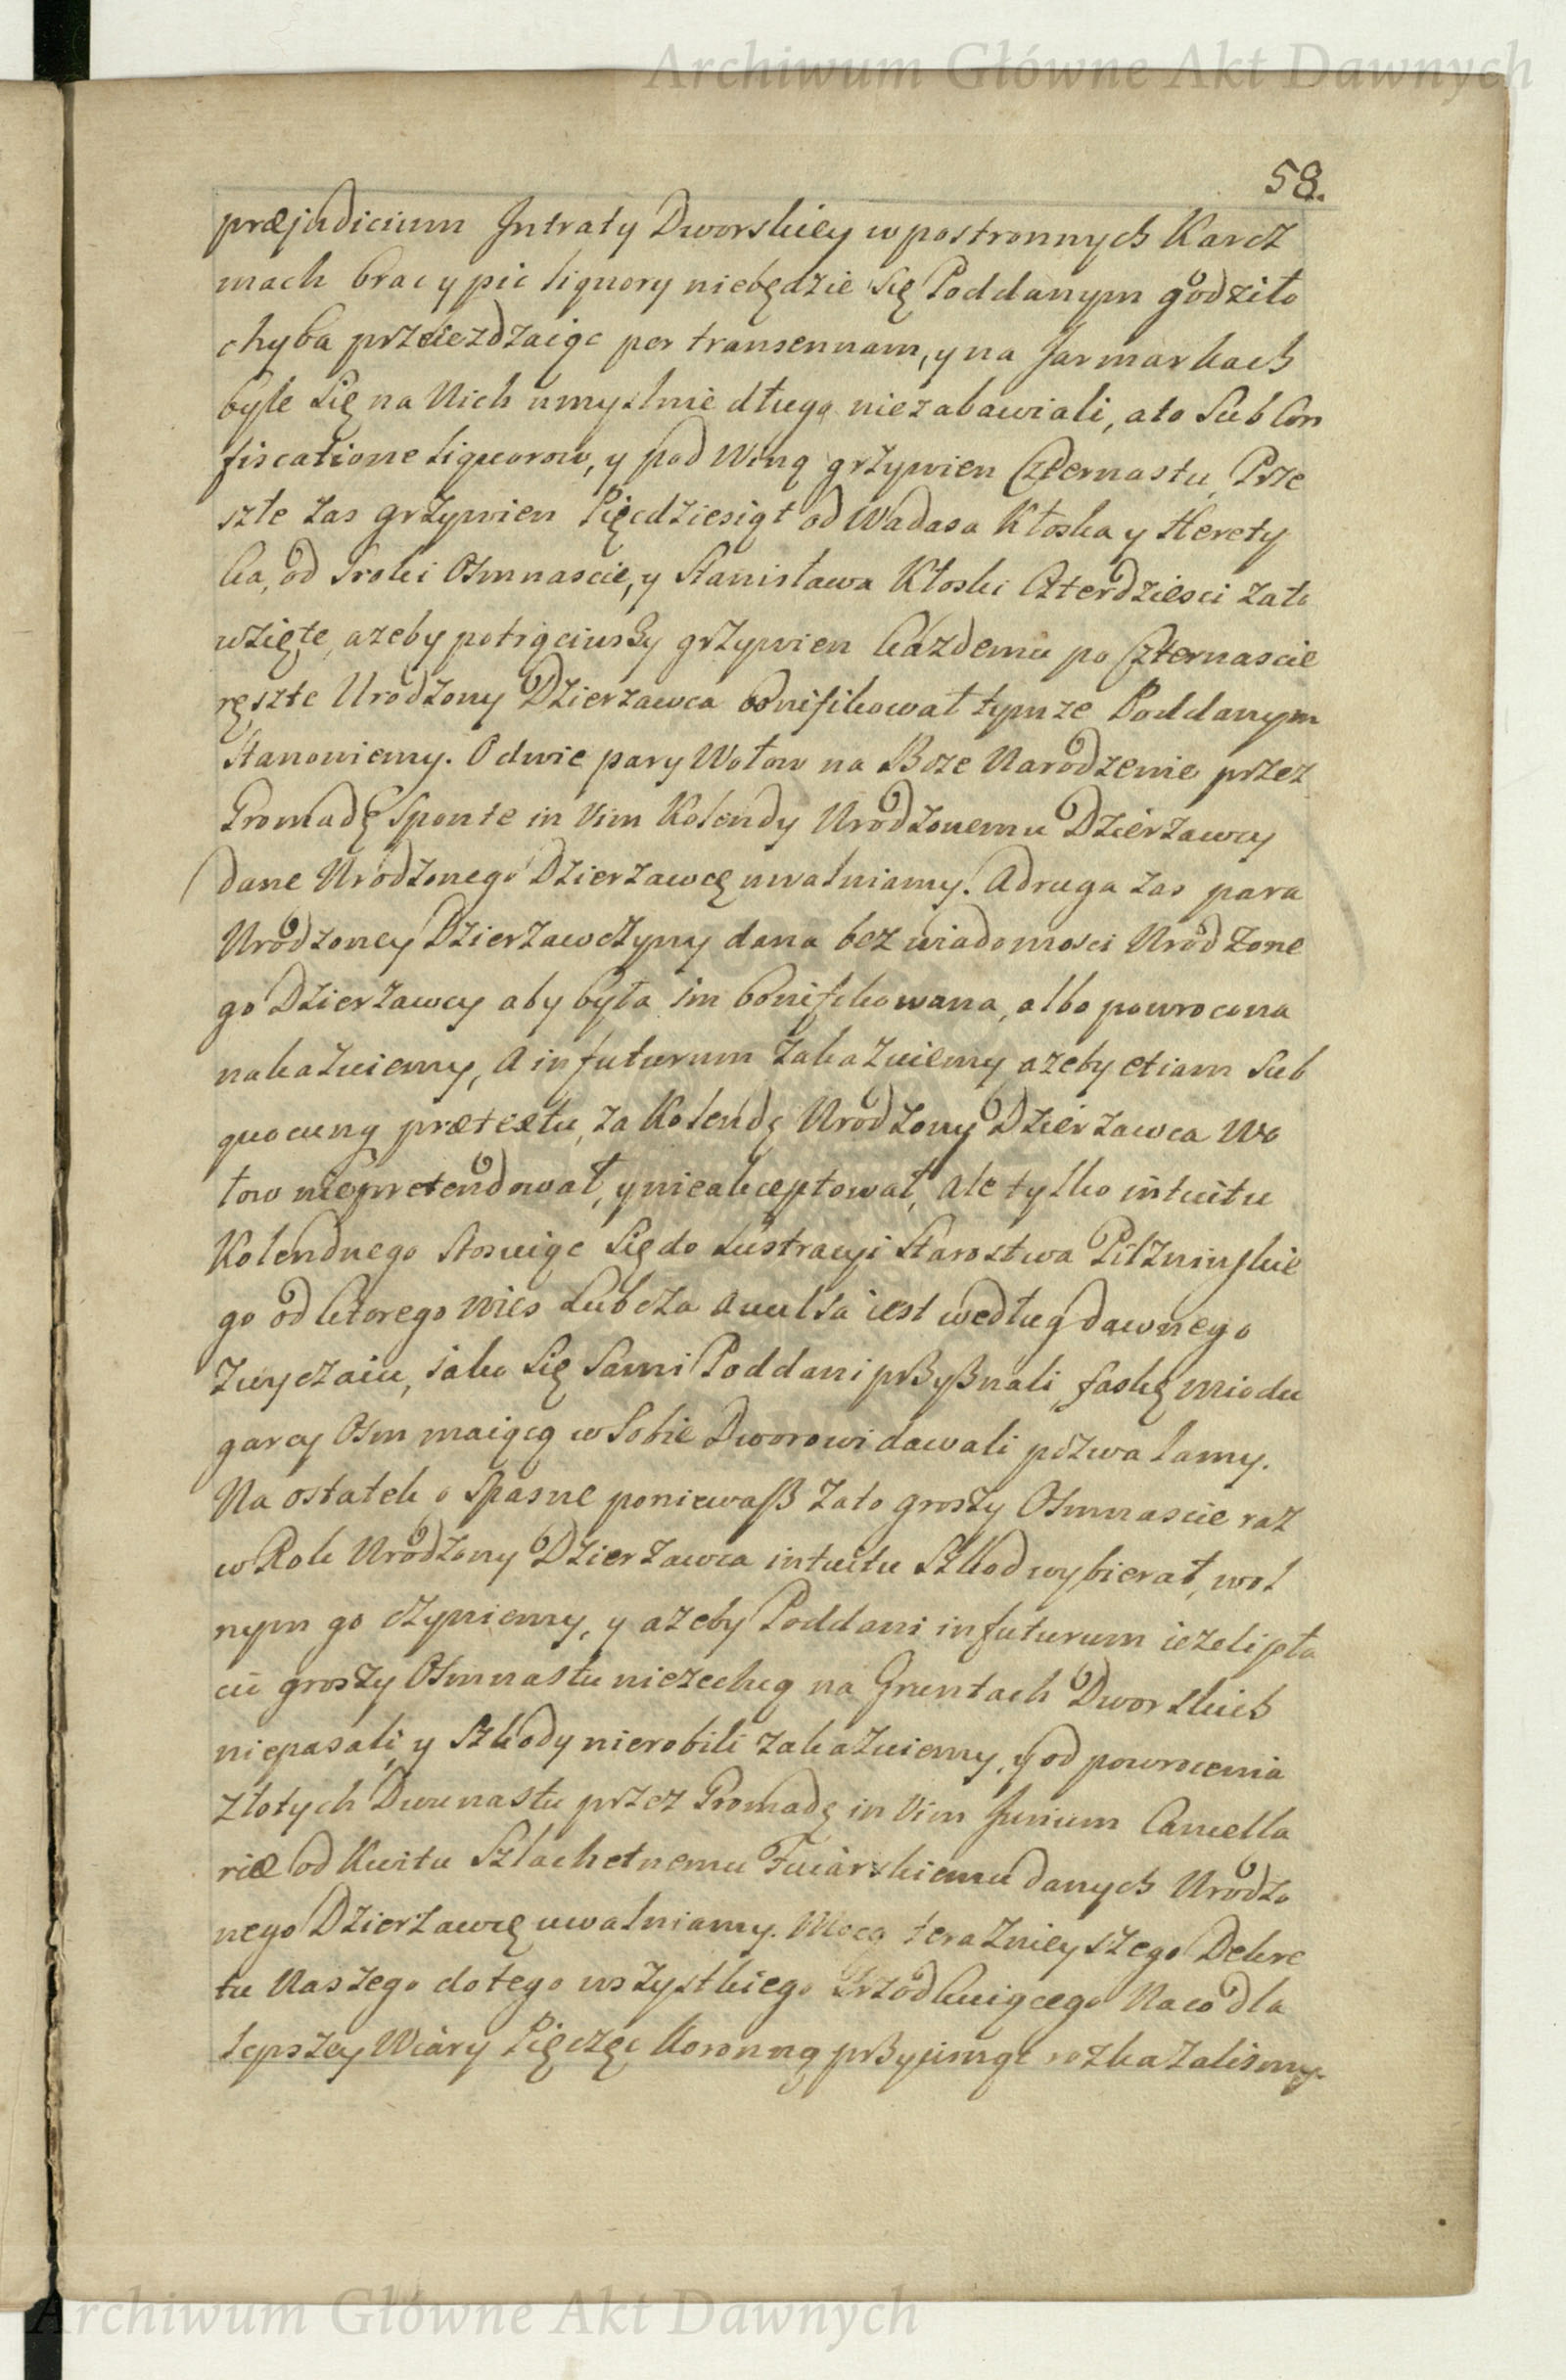 Archiwum Główne Akt Dawnych
58.
præjudicium Jntraty Dworskiey w postronnych Karcz
mach brac y pic liquory niebędzie się Poddanym godziło
chyba przeiezdzaiąc per transennam, y na Jarmarkach
byle się na Nich umyslnie długo niezabawiali, a to Sub Con
fiscatione liquorow, y pod Winą grzywien Czternastu, Prze
szłe zas grzywien Pięcdziesiąt od Wadasa Kłoska y Herety
ka, od Sroki Osmnascie, y Stanisława Kłoski Czterdziesci zato
wzięte, azeby potrąciwszy grzywien kazdemu po Czternascie
ręsztę Urodzony Dzierzawca bonifikował tymze Poddanym
Stanowiemy. O dwie pary Wołow na Boze Narodzenie przez
Gromadę Sponte in Vim Kolendy Urodzonemu Dzierzawcy
dane Urodzonego Dzierzawcę uwalniamy. A druga zas para
Urodzoney Dzierzawczyny dana bez wiadomosci Urodzone
go Dzierzawcy aby była im bonifikowana, albo powrocona
nakazuiemy, A in futurum zakazuiemy azeby etiam Sub
quocunq prætextu, za Kolendę Urodzony Dzierzawca Wo
łow niepretendował, y nieakceptował, Ale tylko intuitu
Kolendnego stosuiąc się do Lustracyi Starostwa Pilzninskie
go od ktorego wies Lubcza avulsa iest według dawnego
Zwyczaiu, iako się Sami Poddani przyznali, faskę miodu
garcy Osm maiącą w Sobie Dworowi dawali pozwalamy.
Na ostatek o Spasne poniewaß zato groszy Osmnascie raz
w Rok Urodzony Dzierzawca intuitu Szkod wybierał, wol
nym go czyniemy, y azeby Poddani in futurum iezeli pła
cic groszy Osmnastu niezechcą na Gruntach Dworskich
niepasali, y Szkody nierobili zakazuiemy, y od powrocenia
Złotych Dwunastu przez Gromadę in Vim Jurium Cancella
riæ od Kwitu Szlachetnemu danych Urodzo
nego Dzierzawcę uwalniamy. Mocą teraznieyszego Dekre
tu Naszego do tego wszystkiego Srzodkuiącego Na co dla
lepszey Wiary Pięczęc Koronną przycisnąc rozkazalismy.
Archiwum Główne Akt Dawnych